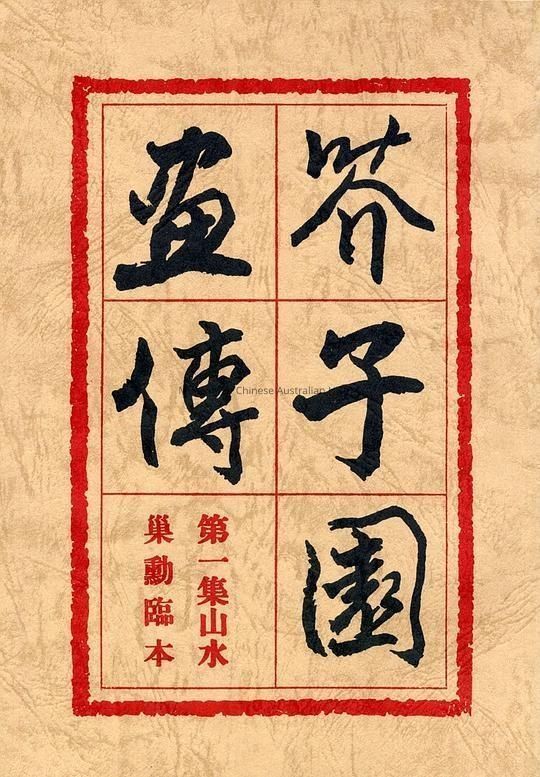 芥子園
畫傳
第一集山水
巢勳臨本
Chinese Australian